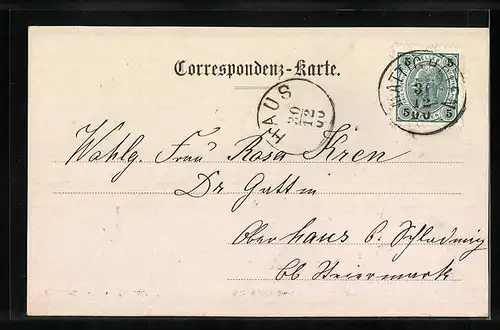 Correspondenz-Karte.
HAUS
30
12
00
5 5
31
12
00
5 5
Wohlg. Frau Rosa Kren
Dr Gattin
Oberhaus b. Schladmig
Ob Steiermark